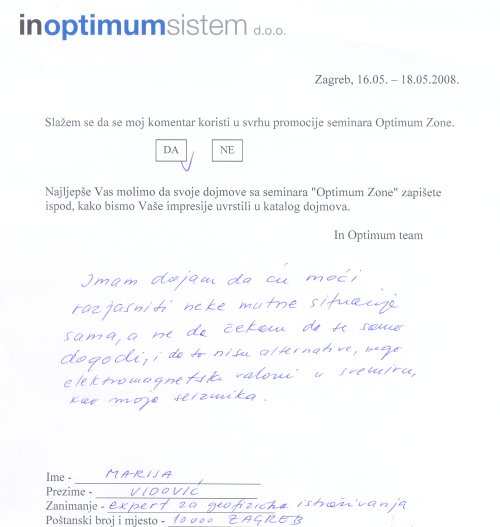 inoptimumsistem d.o.o.
Zagreb, 16.05. – 18.05.2008.
Slažem se da se moj komentar koristi u svrhu promocije seminara Optimum Zone.
DA NE
Najljepše Vas molimo da svoje dojmove sa seminara "Optimum Zone" zapišete
ispod, kako bismo Vaše impresije uvrstili u katalog dojmova.
In Optimum team
Imam dojam da ću moći
razjasniti neke mutne situacije
sama, a ne da čekam da se samo
dogodi, i da to nisu alternative, nego
elektromagnetski valovi u svemiru,
kao moja seizmika.
Ime - MARIJA
Prezime - VIDOVIĆ
Zanimanje - expert za geofizička istraživanja
Poštanski broj i mjesto - 10000 ZAGREB